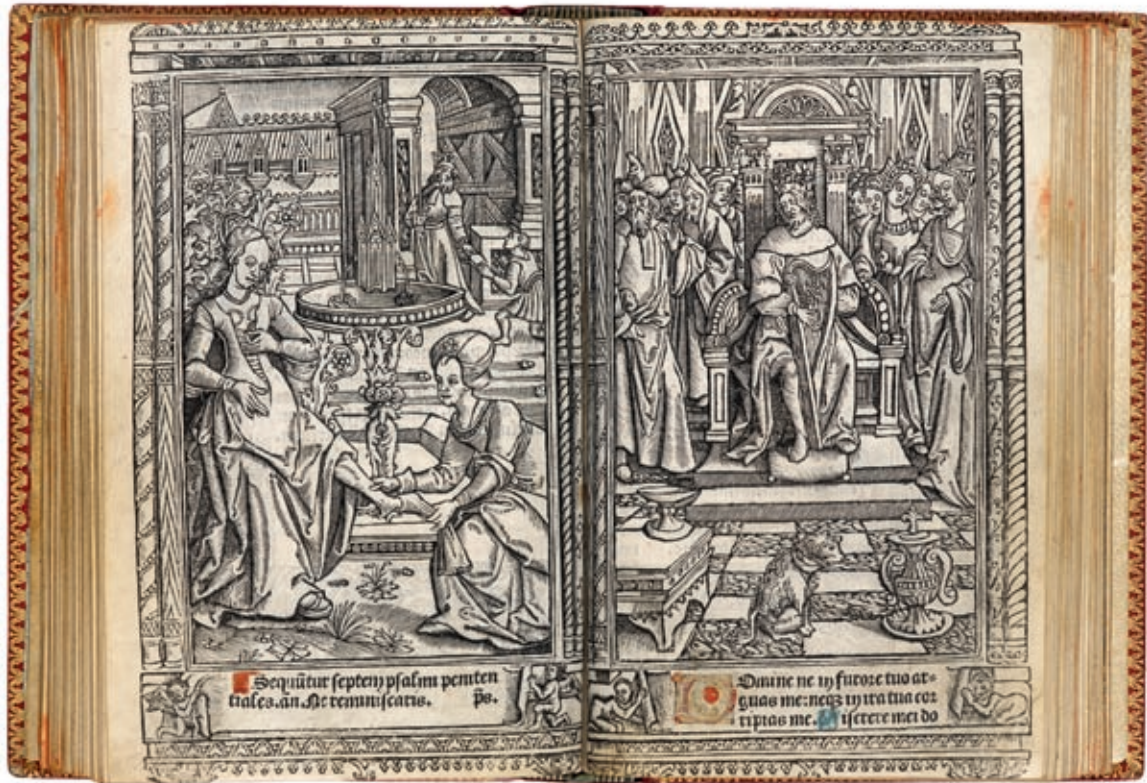 Sequũtur septem psalmi peniten
tiales. an̄. Ne reminiscaris. p̄s.
Domine ne in furore tuo ar-
guas me: neqȝ in ira tua cor
ripias me. Miserere mei do